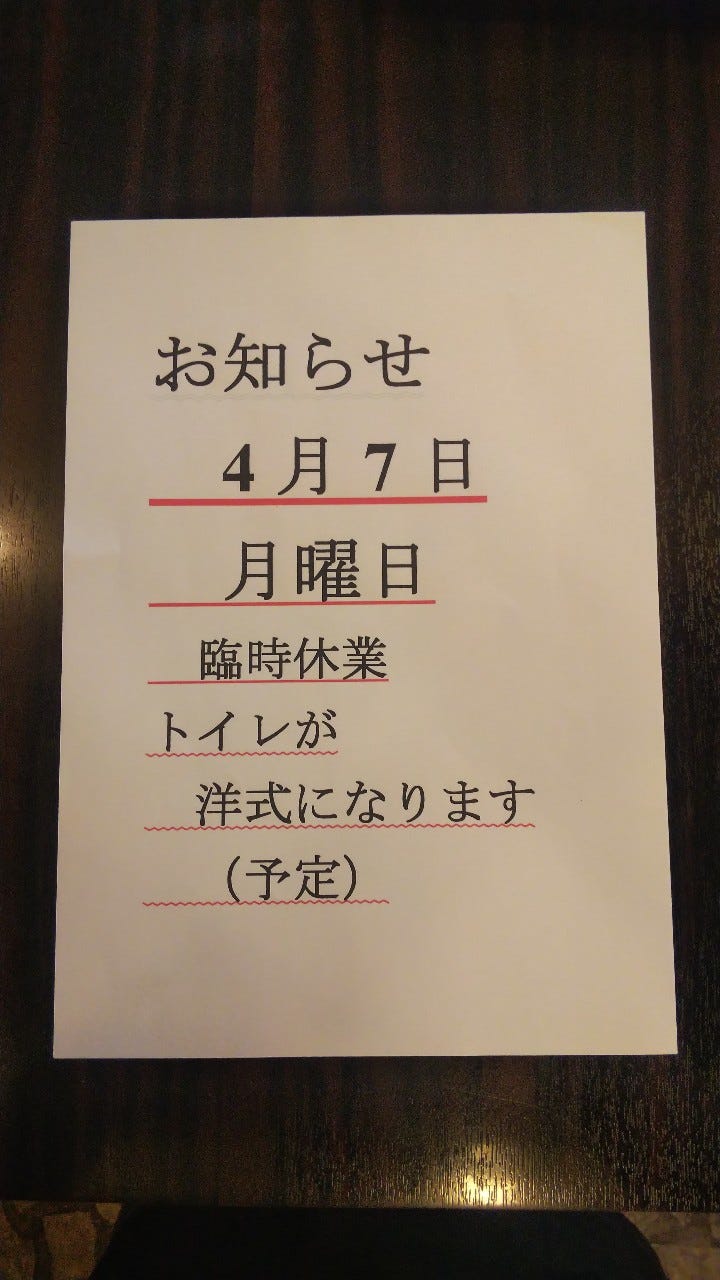 お知らせ
4月7日
月曜日
臨時休業
トイレが
洋式になります
(予定)